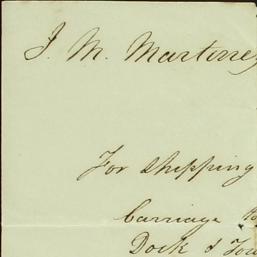 J. M. Martinez
For shipping
Carriage
Dock & Tow